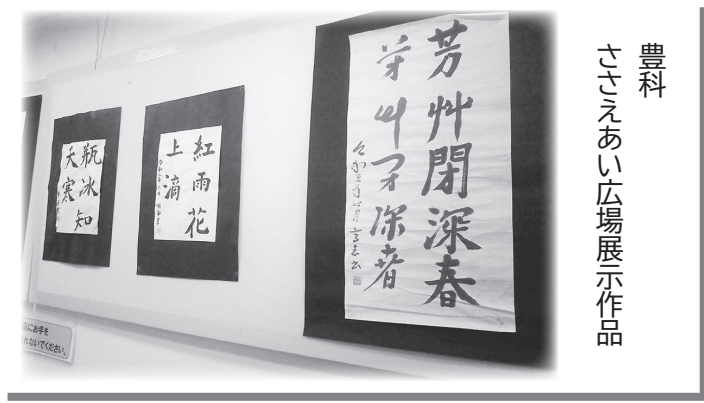 豊科
ささえあい広場展示作品
芳艸閉深春
紅雨花
上滴
瓶冰知
天寒
にお手を
れないでください。